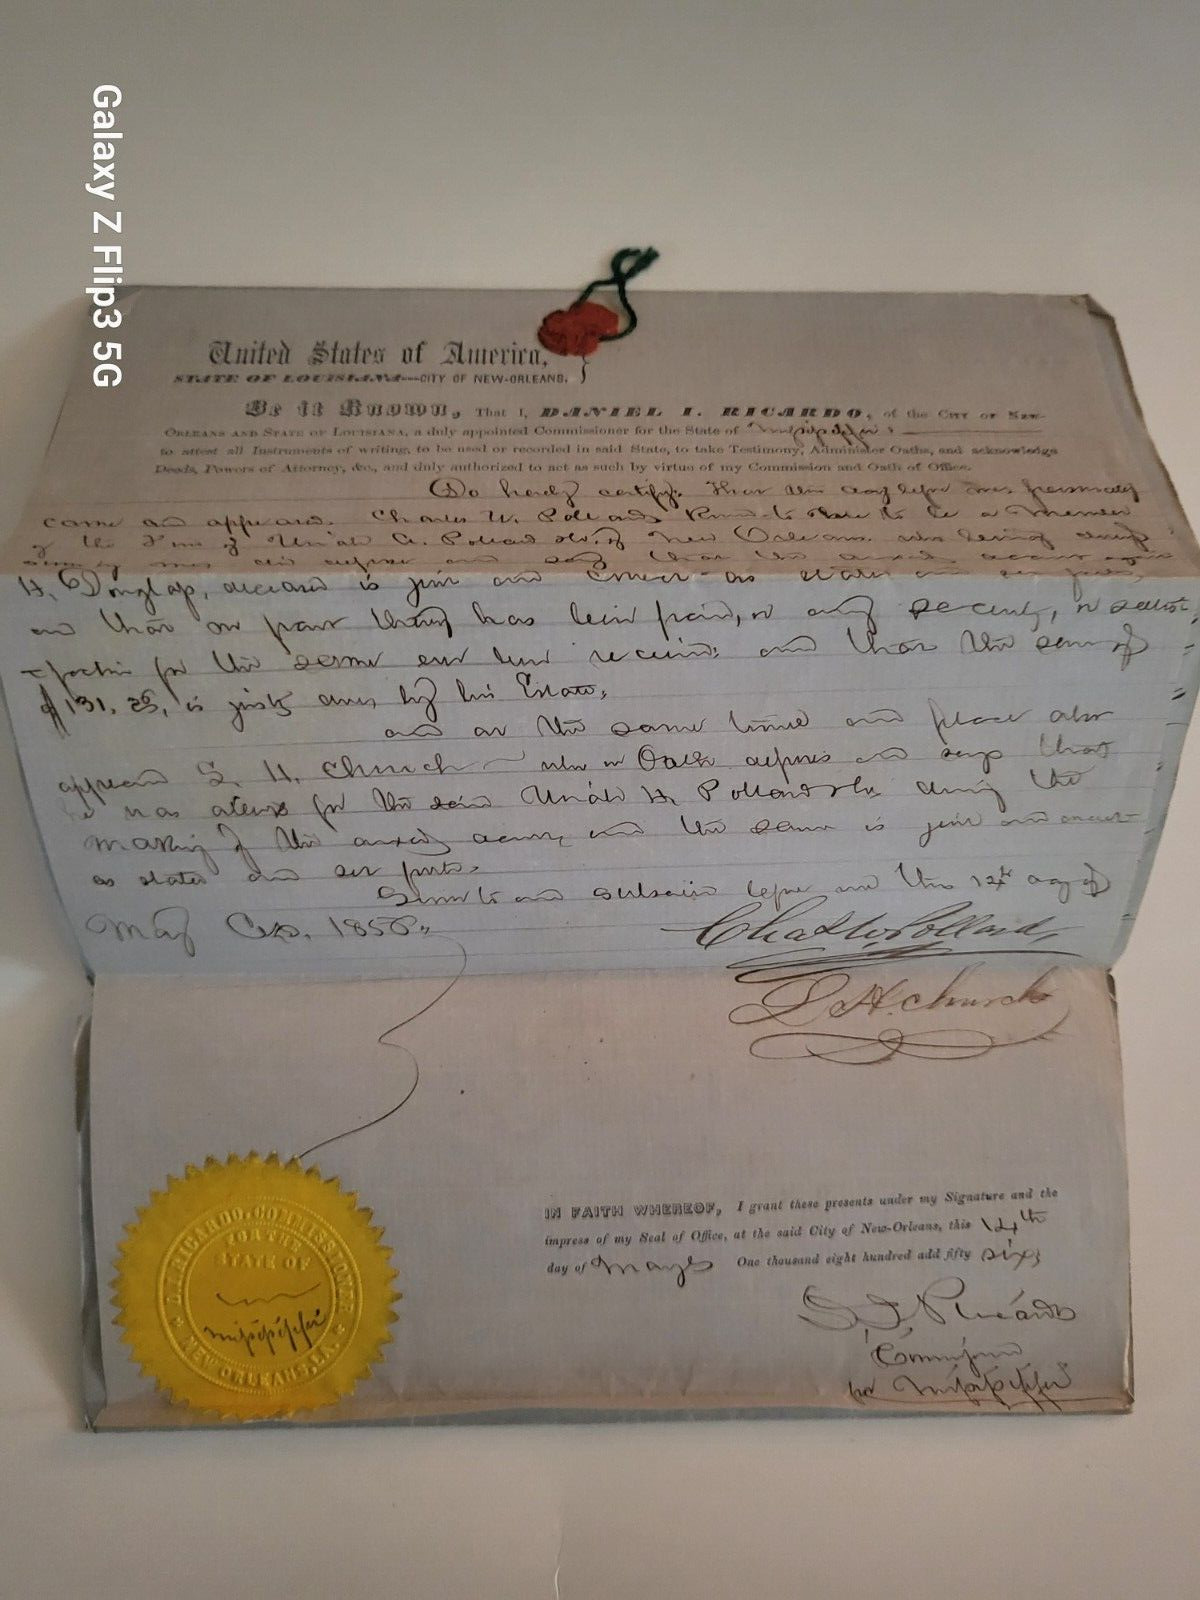 Galaxy Z Flip3 5G
United States of America,
STATE OF LOUISIANA—CITY OF NEW-ORLEANS. }
Be it Known, That I, DANIEL I. RICARDO, of the CITY OF NEW-
ORLEANS AND STATE OF LOUISIANA, a duly appointed Commissioner for the State of Mississippi
to attest all Instruments of writing, to be used or recorded in said State, to take Testimony, Administer Oaths, and acknowledge
Deeds, Powers of Attorney, &c., and duly authorized to act as such by virtue of my Commission and Oath of Office.
Do hereby certify, That this day before me personally
came and appeared Charles W. Pollard to be a Member
of the Firm of Uriah Pollard of New Orleans who being duly
that the annexed account
deceased is just and correct as stated and set forth,
and that no part thereof has been paid, or any security, or satis-
faction for the same ever been received; and that the sum of
$131.25, is justly owing by his Estate,
and at the same time and place also
appeared S. H. Church who on Oath deposes and says that
he was clerk for the said Uriah H. Pollard during the
making of the annexed account, and the same is just and correct
as stated and set forth.
Sworn to and subscribed before me this day of
May 185
Chas W Pollard,
S H. Church
IN FAITH WHEREOF, I grant these presents under my Signature and the
impress of my Seal of Office, at the said City of New-Orleans, this 14th
day of May One thousand eight hundred add fifty six
D. I. Ricardo
Commissioner
for Mississippi
D. I. RICARDO, COMMISSIONER
FOR THE
STATE OF
Mississippi
NEW ORLEANS, LA.